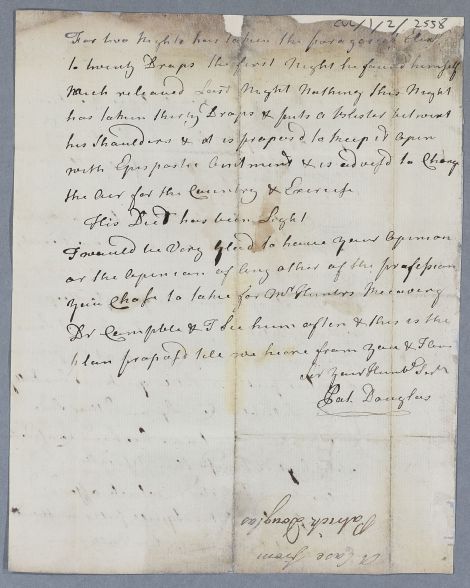 CUL/1/2/2558
For two Nights has taken the paragorick Elix
to twenty Draps the first Night he found himself
much releaved Last Night Nothing this Night
has taken thirty Draps & puts a blister betwixt
his Shoulders & it is propos'd to keep it open
with Epispastic ointment & is advis'd to Change
the air for the Country & Exercise
His Diet has been Light
I would be very glad to have your opinion
or the opinion of any other of the profession
you Chose to take for Mr Hunters Recovery
Dr Campble & I See him often & this is the
plan propos'd till we heare from you & I am
Sir your Humble Servt
Pat. Douglas
A Case from
Patrick Douglas